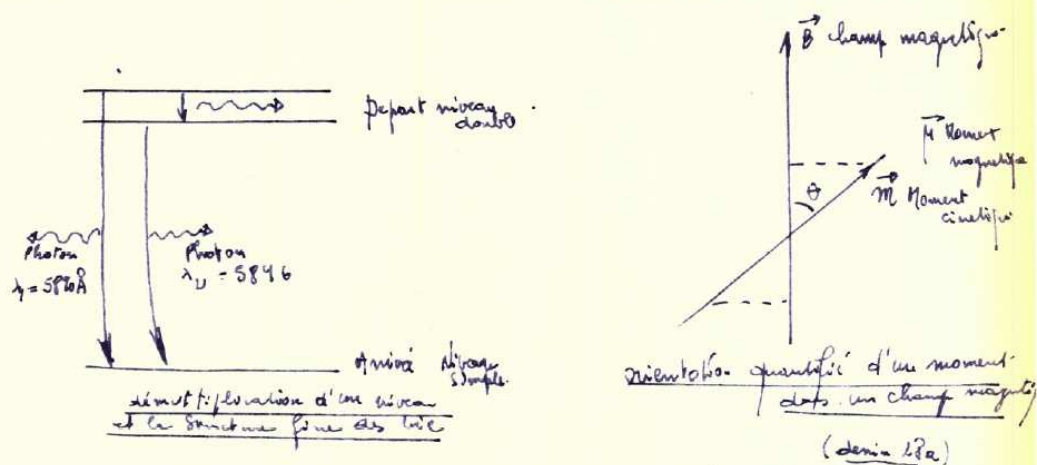 Depart niveau
double
Photon
Photon
λ = 5890Å
λ = 5896
Arrivé Niveau
Simple.
démultiplication d'un niveau
et la Structure fine des
B champ magnétique
M Moment
magnétique
M Moment
cinétique
θ
orientation quantifié d'un moment
dans un champ magnétiq